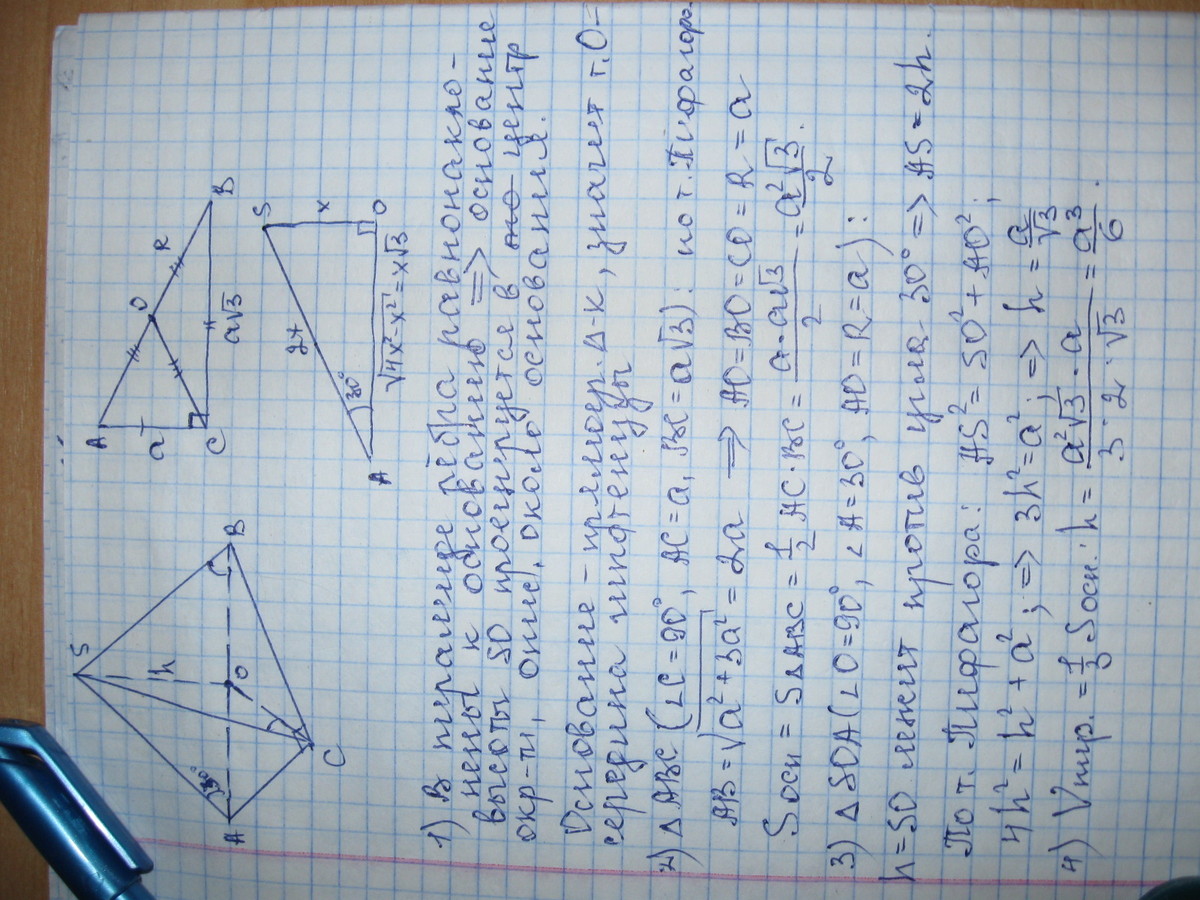 S
h
30°
A
O
B
C
A
O
R
B
a
C
a√3
S
2x
x
30°
A
O
√4x²-x² = x√3
1) В пирамиде рёбра равнонакло-
нены к основанию => основание
высоты SO проецируется в центр
окр-ти, опис. около основания.
Основание - прямоуг. Δ-к, значит т.О-
середина гипотенузы
2) ΔABC (∠C=90°, AC=a, BC=a√3): по т.Пифагора.
AB=√a²+3a² = 2a => AO=BO=CO=R=a
Sосн = SΔABC = 1/2 AC·BC = a·a√3/2 = a²√3/2.
3) ΔSOA (∠O=90°, ∠A=30°, AO=R=a):
h=SO лежит против угла 30° => AS=2h.
По т. Пифагора: AS²=SO²+AO²;
4h²=h²+a²; => 3h²=a²; => h=a/√3
4) Vпир. = 1/3 Sосн.·h = a²√3·a/3·2·√3 = a³/6.